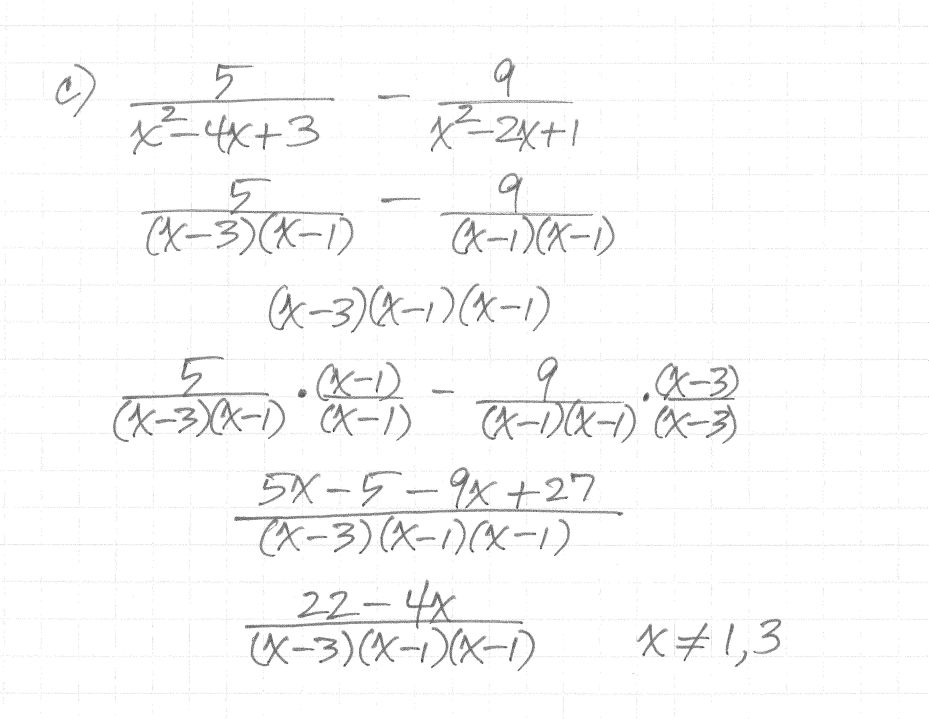 c) 5/(x²-4x+3) - 9/(x²-2x+1)
5/((x-3)(x-1)) - 9/((x-1)(x-1))
(x-3)(x-1)(x-1)
5/((x-3)(x-1)) · (x-1)/(x-1) - 9/((x-1)(x-1)) · (x-3)/(x-3)
(5x-5-9x+27)/((x-3)(x-1)(x-1))
(22-4x)/((x-3)(x-1)(x-1)) x≠1,3